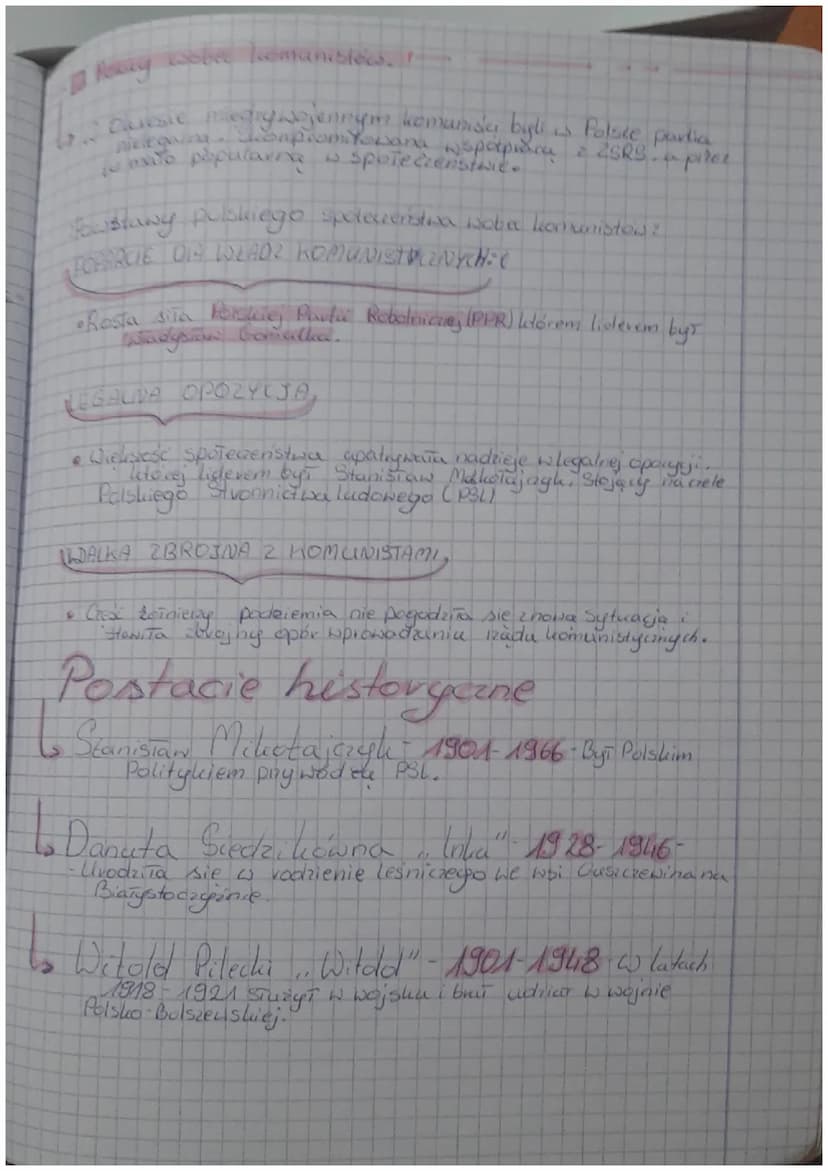 wobec komunistów.
okresie międzywojennym komuniści byli w Polsce partią
nielegalną. skompromitowaną współpracą z ZSRS. a przez
to mało popularną w społeczeństwie.
Postawy polskiego społeczeństwa wobec komunistów:
POPARCIE DLA WŁADZ KOMUNISTYCZNYCH:
• Rosła siła Polskiej Partii Robotniczej (PPR) którem liderem był
Władysław Gomułka.
LEGALNA OPOZYCJA
• Większość społeczeństwa upatrywała nadzieje w legalnej opozycji.
której liderem był Stanisław Mikołajczyk. Stojący na czele
Polskiego Stronnictwa ludowego (PSL)
WALKA ZBROJNA Z KOMUNISTAMI
• Część żołnierzy podziemia nie pogodziła się z nową sytuacją i
stawiła zbrojny opór wprowadzaniu rządu komunistycznych.
Postacie historyczne
↳ Stanisław Mikołajczyk - 1901-1966 - Był Polskim
Politykiem przywódcą PSL.
↳ Danuta Siedzikówna „Inka" - 1928-1946-
- Urodziła się w rodzienie leśniczego we wsi na
Białystocczyźnie.
↳ Witold Pilecki „Witold" - 1901-1948 w latach
1918-1921 służył w wojsku i brał udział w wojnie
Polsko-Bolszewskiej.